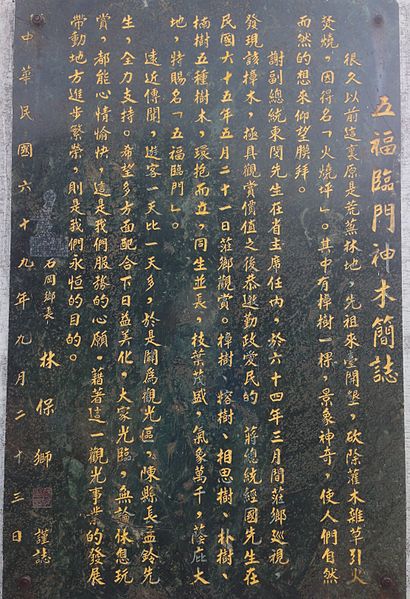 五福臨門神木簡誌
很久以前這裏原是荒蕪林地，先祖來墾開墾，砍除灌木雜草引火
發燒，因得名「火燒坪」。其中有樟樹一棵，景象神奇，使人們自然
而然的想來仰望膜拜。
謝副總統東閔先生在省主席任內，於六十四年三月間蒞鄉巡視，
發現該樟木，極具觀賞價值之後恭邀勤政愛民的　蔣總統經國先生在
民國六十五年五月二十一日蒞鄉觀賞。樟樹、榕樹、相思樹、朴樹、
楠樹五種樹木，環抱而立，同生並長，枝葉茂盛，氣象萬千，蔭庇大
地，特賜名「五福臨門」。
遠近傳聞，遊客一天比一天多，於是闢為觀光區，陳縣長孟鈴先
生，全力支持。希望多方面配合下日益美化，大家光臨，無論休憩玩
賞，都能心情愉快，這是我們服務的心願。藉著這一觀光事業的發展
帶動地方進步繁榮，則是我們永恒的目的。
石岡鄉長　林保獅　謹誌
中華民國六十九年九月二十三日